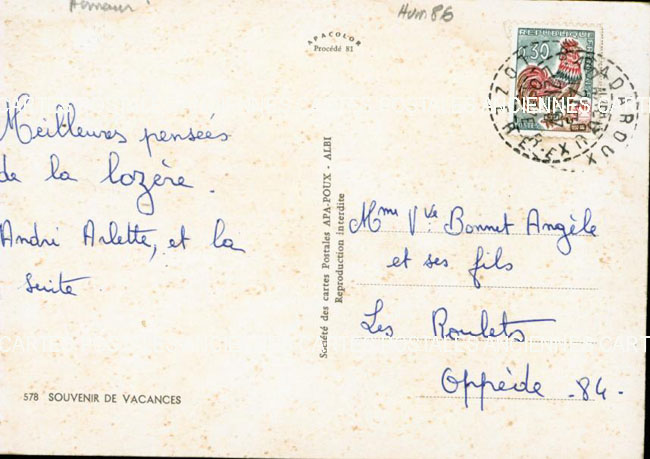 Hum 86
APACOLOR
Procédé 81
REPUBLIQUE
0,30
POSTES
Meilleures pensées
de la lozère.
André Arlette, et la
suite
578 SOUVENIR DE VACANCES
Société des cartes Postales APA-POUX - ALBI
Reproduction interdite
Mme Vve Bonnet Angèle
et ses fils
Les Roulets
Oppède -84-